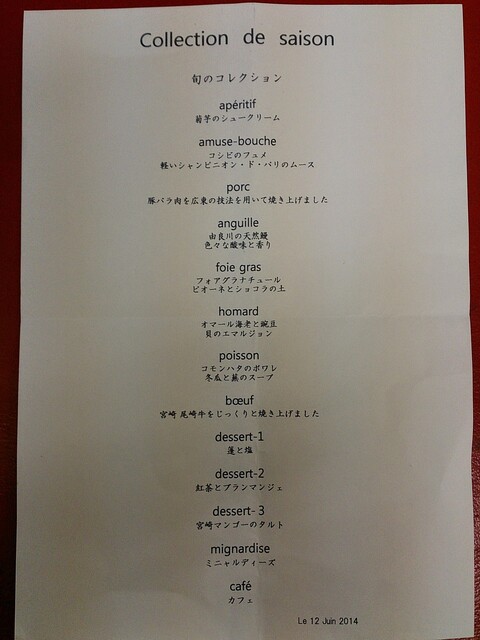 Collection de saison
旬のコレクション
apéritif
菊芋のシュークリーム
amuse-bouche
コシビのフュメ
軽いシャンピニオン・ド・パリのムース
porc
豚バラ肉を広東の技法を用いて焼き上げました
anguille
由良川の天然鰻
色々な酸味と香り
foie gras
フォアグラナチュール
ピオーネとショコラの土
homard
オマール海老と豌豆
貝のエマルジョン
poisson
コモンハタのポワレ
冬瓜と蕪のスープ
bœuf
宮崎 尾崎牛をじっくりと焼き上げました
dessert-1
蓬と塩
dessert-2
紅茶とブランマンジェ
dessert-3
宮崎マンゴーのタルト
mignardise
ミニャルディーズ
café
カフェ
Le 12 Juin 2014